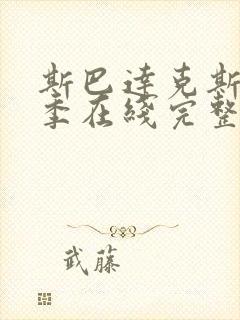 斯巴達克斯
季在綫完整
武藤